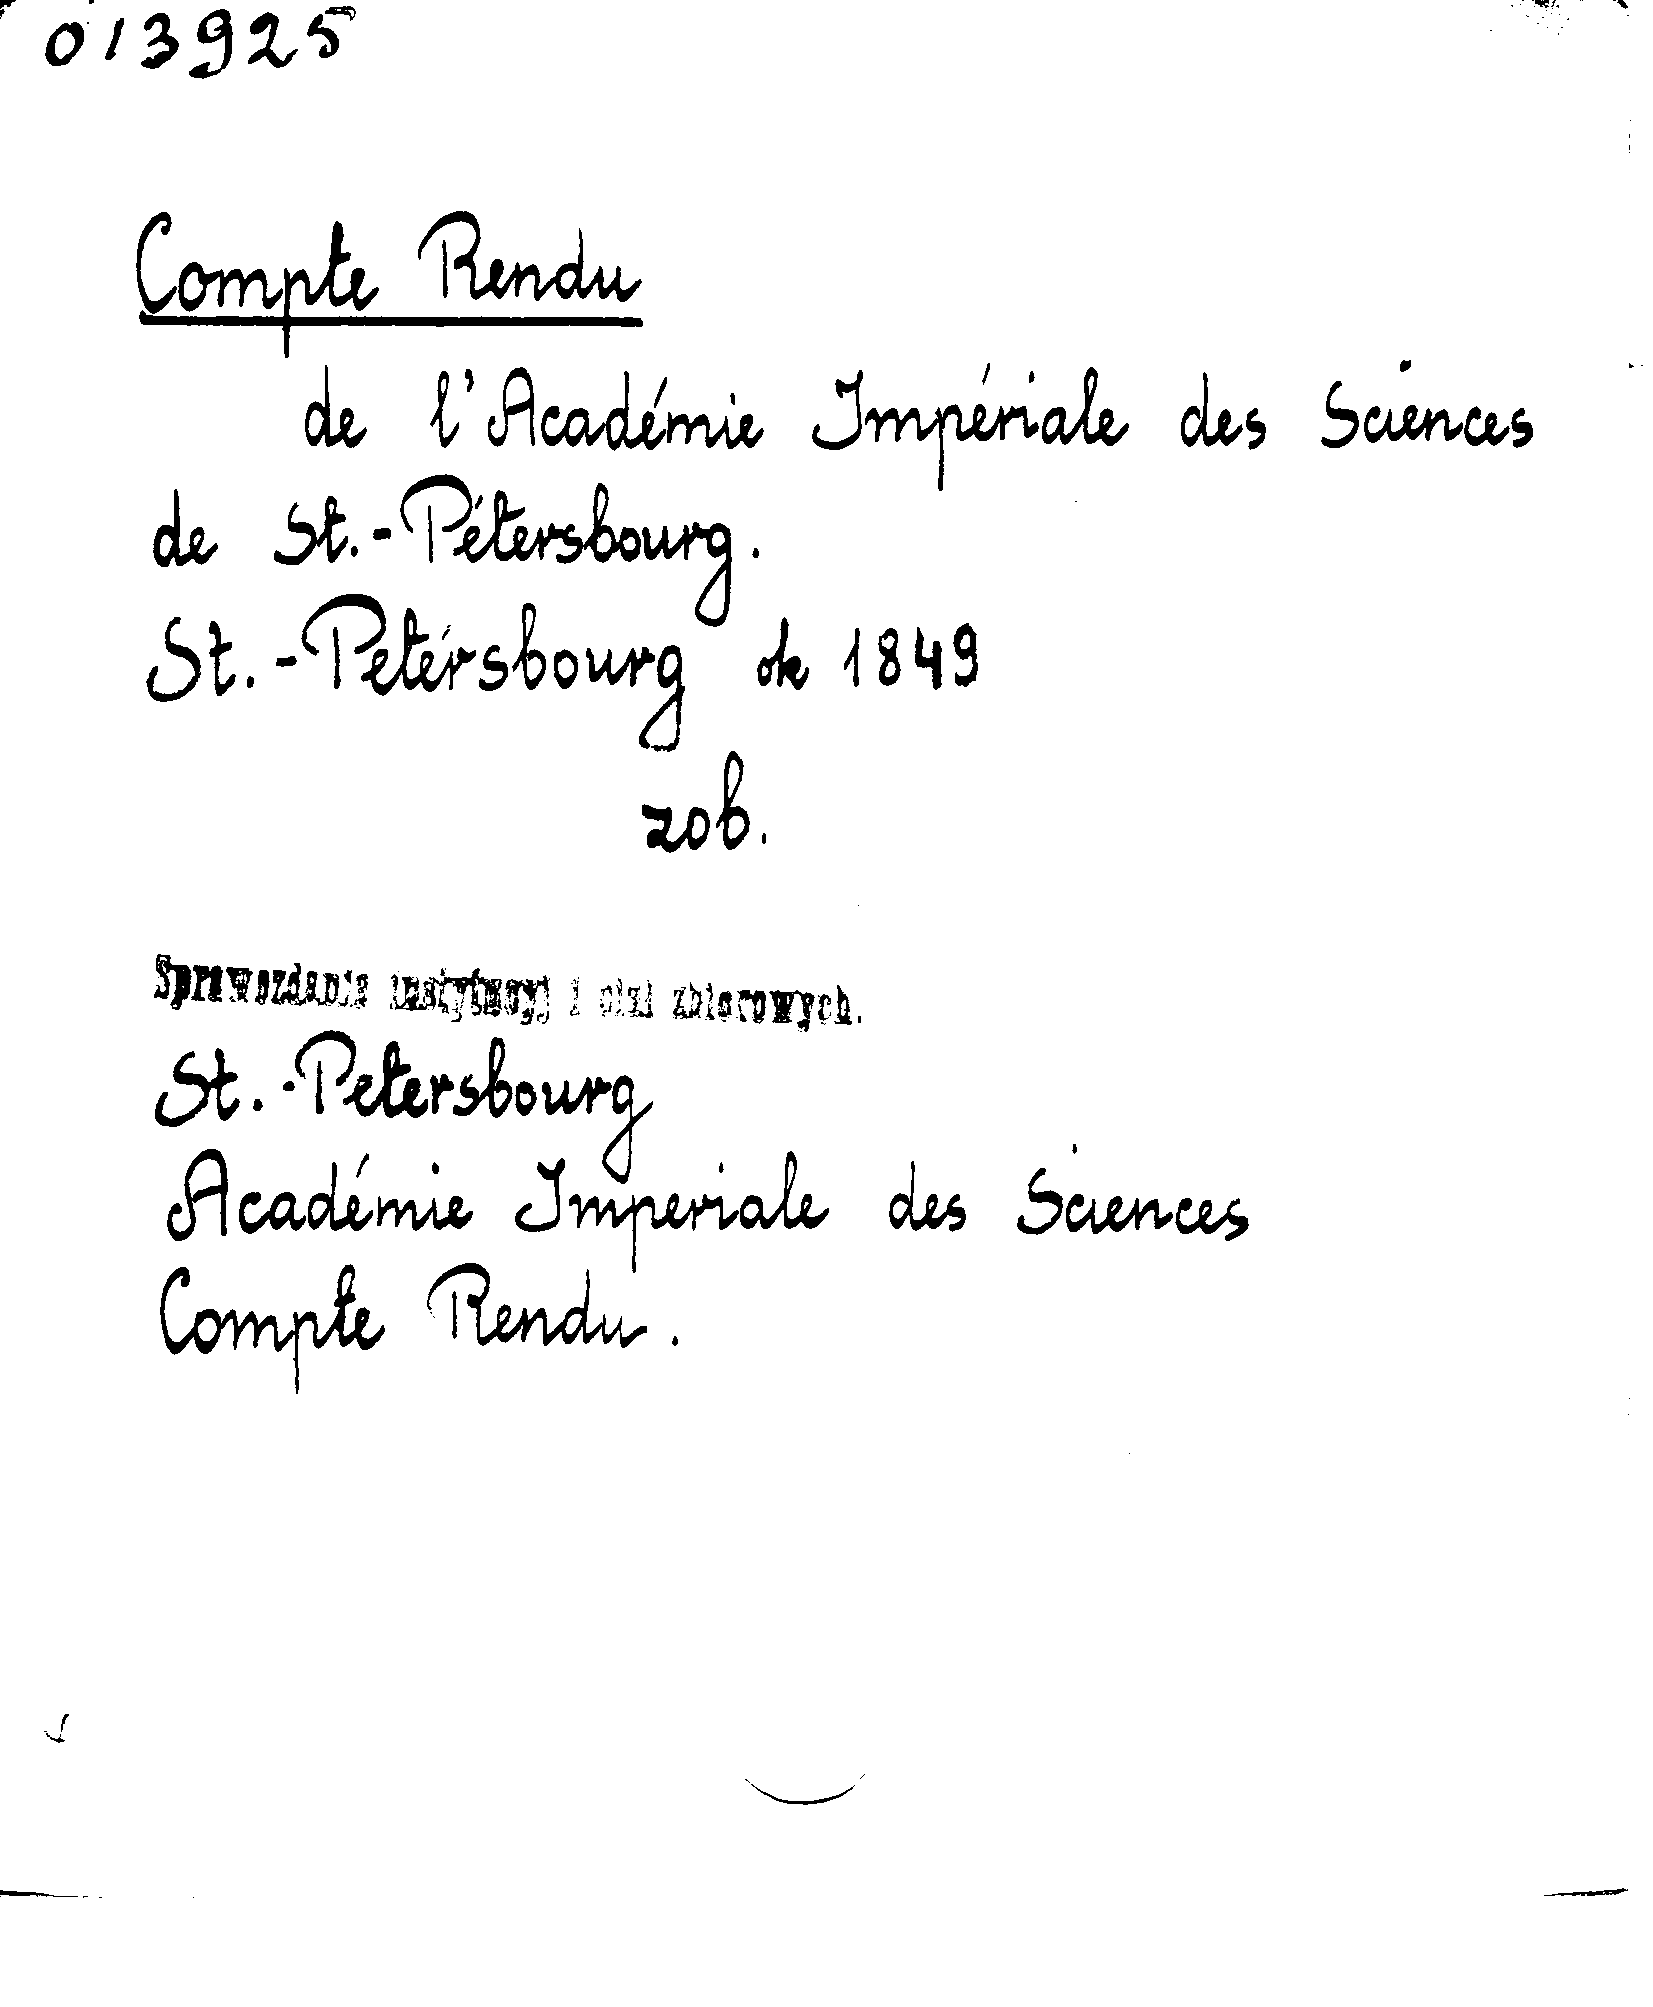 013925
Compte Rendu
de l'Académie Impériale des Sciences
de St.-Pétersbourg.
St.-Petérsbourg ok 1849
zob.
Sprawozdania instytucyj i ciał zbiorowych.
St.-Petersbourg
Académie Imperiale des Sciences
Compte Rendu.